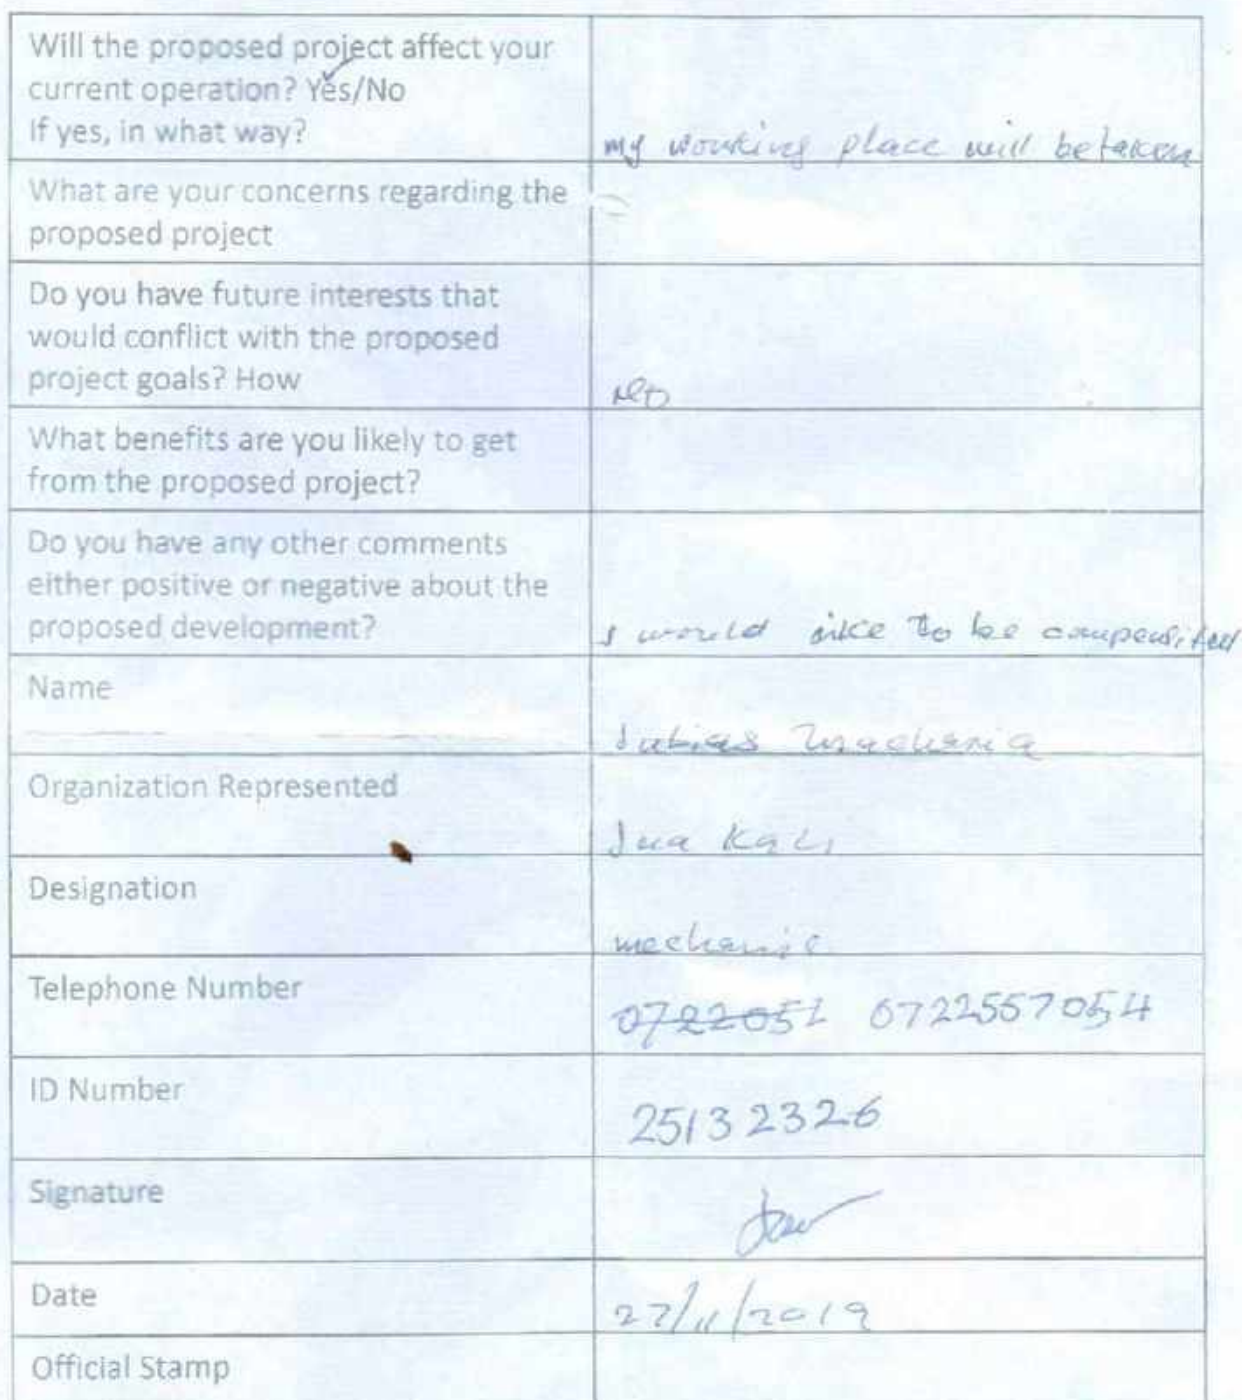 Will the proposed project affect your
current operation? Yes/No
If yes, in what way?
my working place will be taken
What are your concerns regarding the
proposed project
Do you have future interests that
would conflict with the proposed
project goals? How
NO
What benefits are you likely to get
from the proposed project?
Do you have any other comments
either positive or negative about the
proposed development?
I would like to be compensited
Name
Organization Represented
Jua Kali
Designation
mechanic
Telephone Number
0722051 0722557054
ID Number
25132326
Signature
Date
27/11/2019
Official Stamp